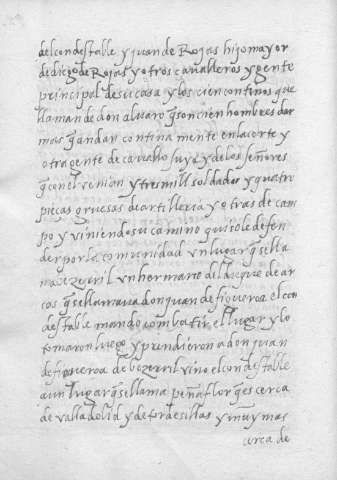 del condestable y juan de Rojas hijo mayor
de diego de Rojas y otros cavalleros y gente
principal de su casa y los cien continos que
llaman de don alvaro q̃ son cien hombres dar
mas q̃ andan continamente en la corte y
otra gente de cavallo suya y de los señores
q̃ con el venian y tres mill soldados y quatro
pieças gruesas de artilleria y otras de cam
po y viniendo su camino quisole defen
der por la comunidad un lugar q̃ se lla
ma bezerril un hermano del duque de ar
cos q̃ se llamava don juan de figueroa el con
destable mando combatir el lugar y lo
tomaron luego y prendieron a don juan
de figueroa de bezerril vino el condestable
a un lugar q̃ se llama peñaflor q̃ es cerca
de valladolid y de tordesillas y muy mas
cerca de